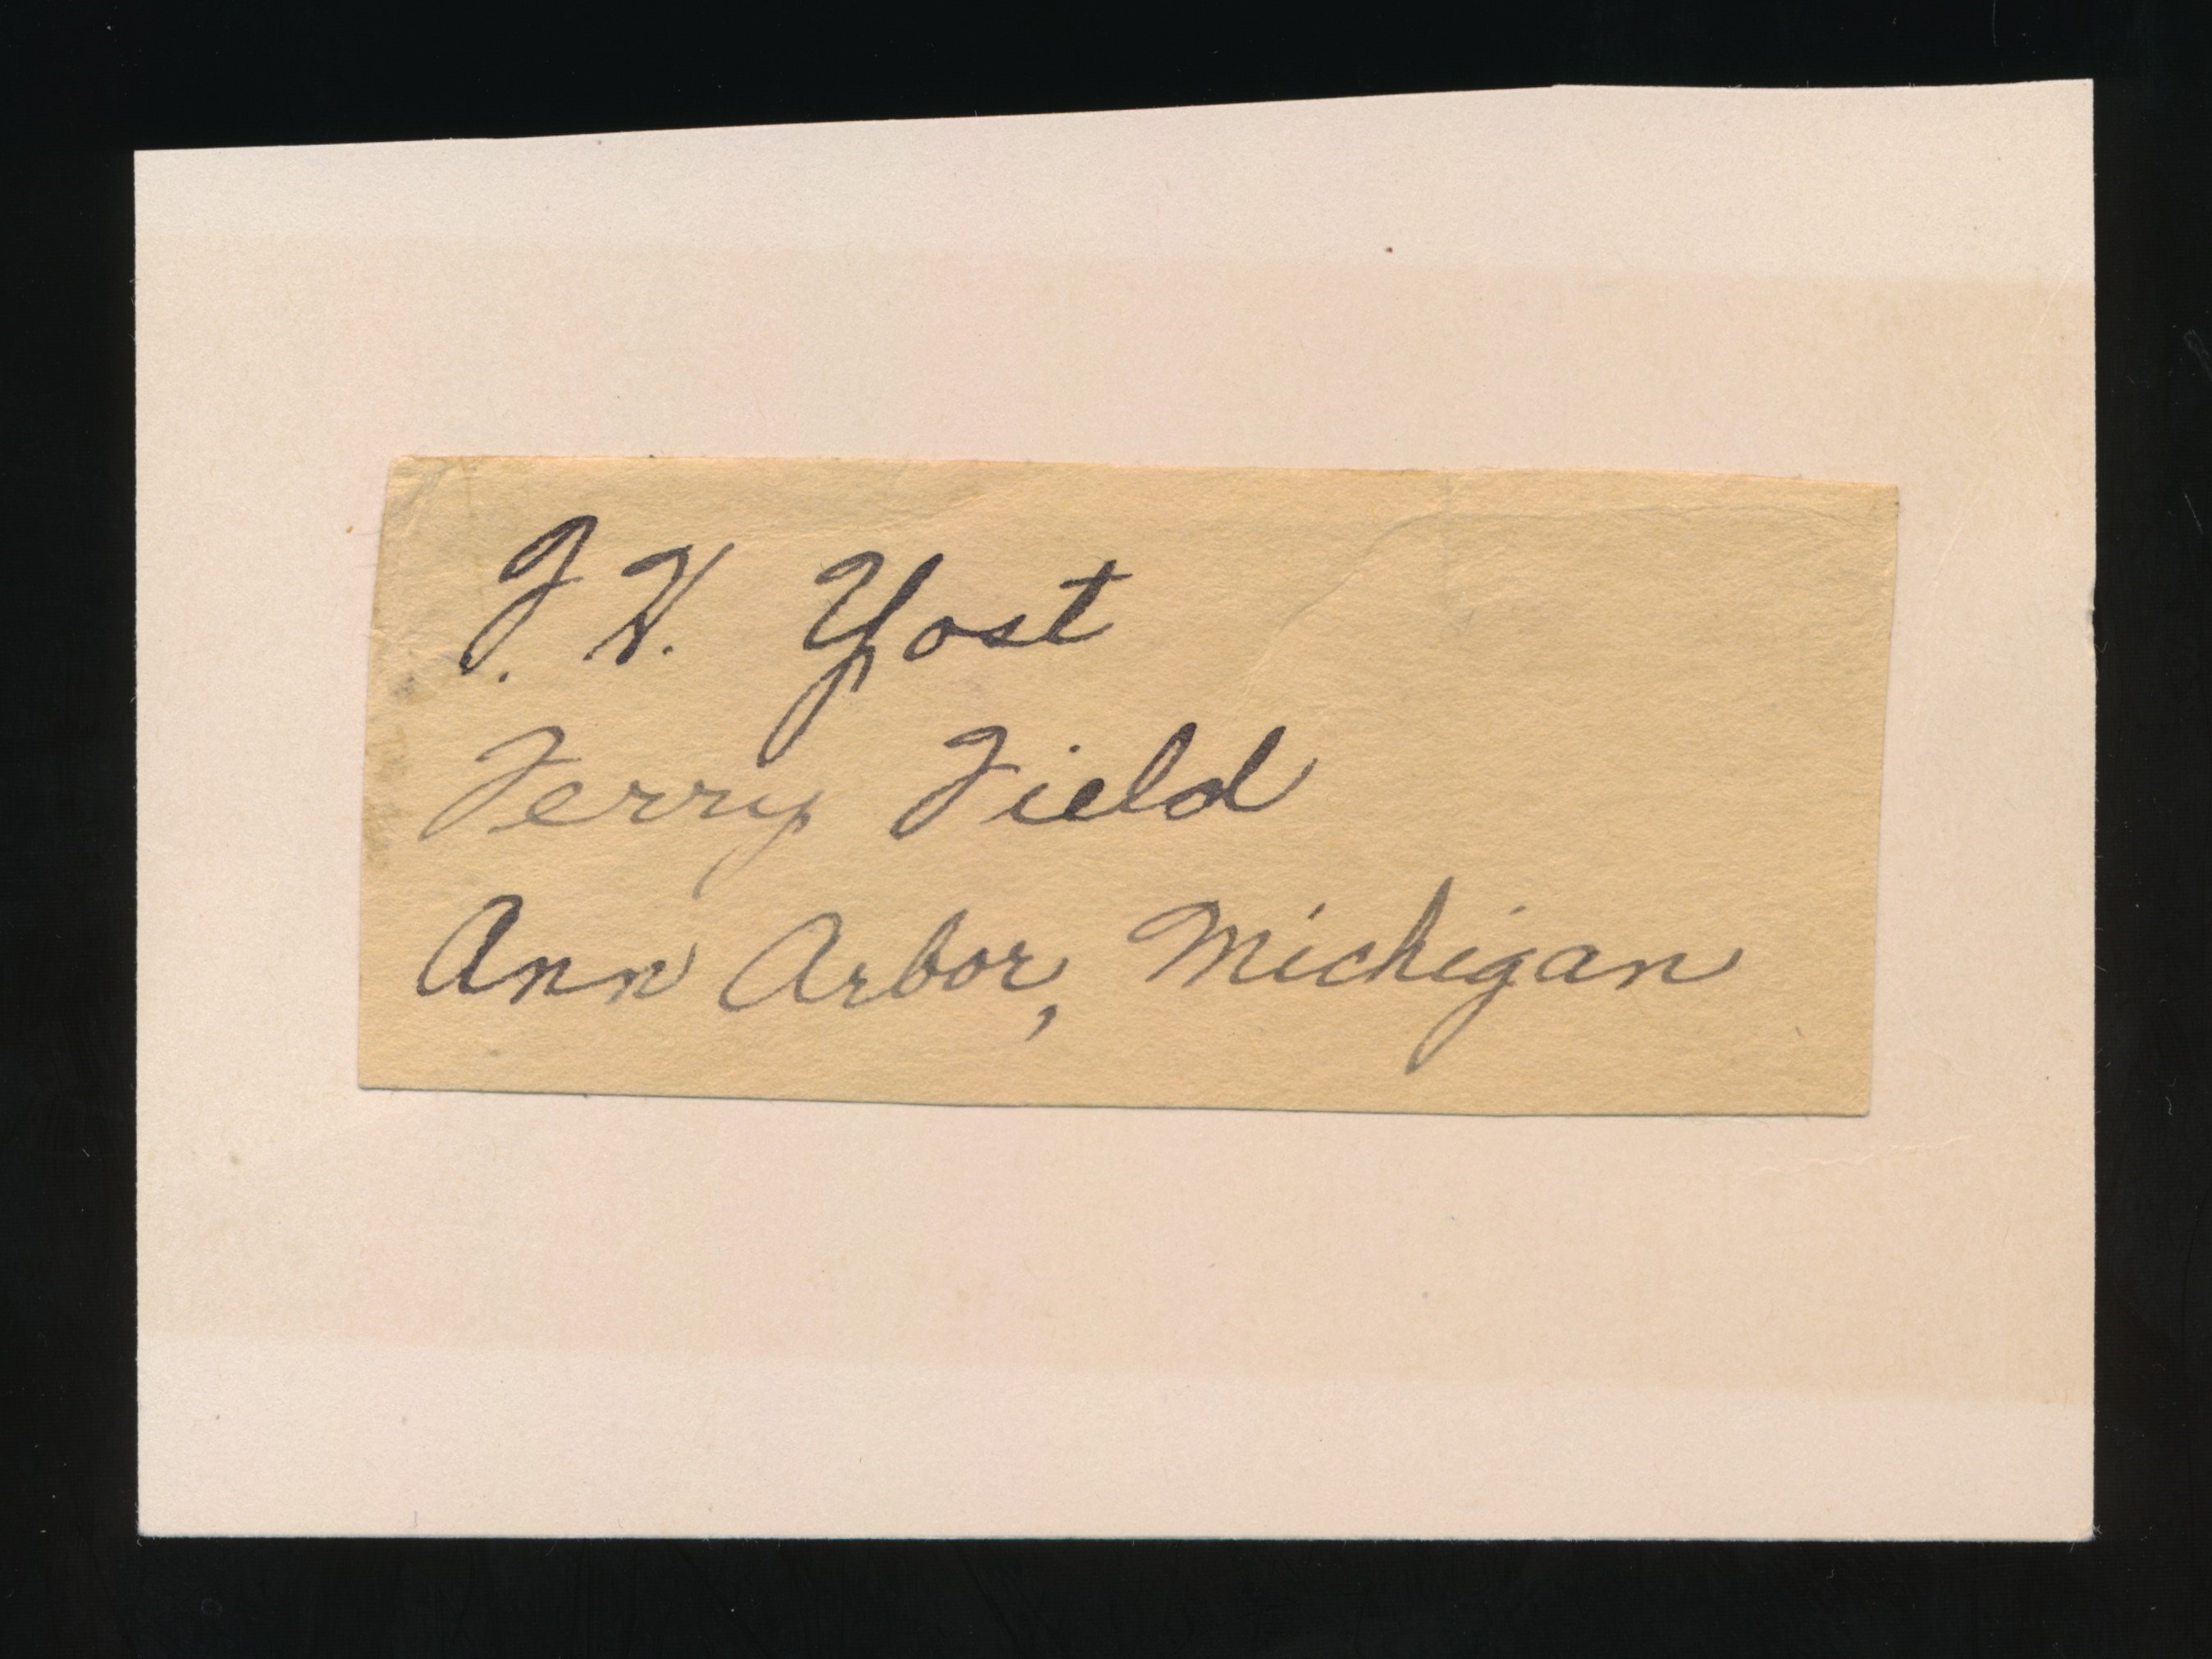 F. H. Yost
Ferry Field
Ann Arbor, Michigan